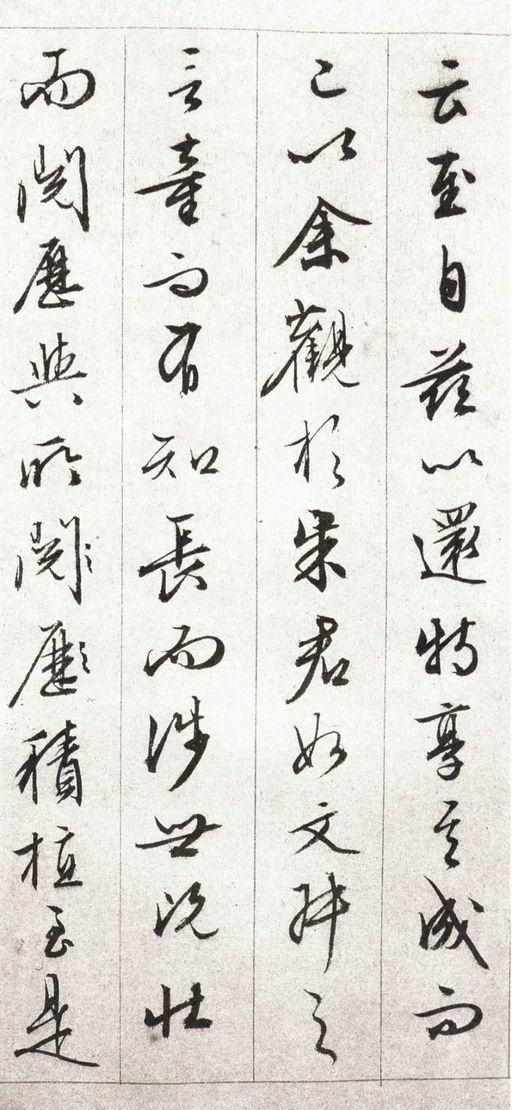 云至自茲以還特享其成而
已以余觀於朱君如文舟之
言童而有知長而涉世況壯
而閱歷與所閱歷積植至是